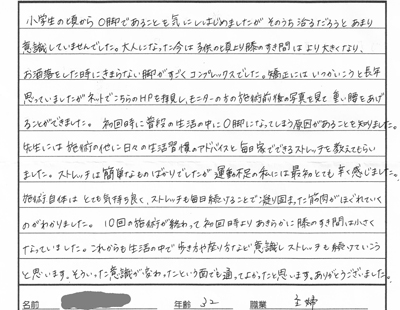 小学生の頃からO脚であることを気にしはじめましたがそのうち治るだろうとあまり
意識していませんでした。大人になった今は子供の頃より膝のすき間はより大きくなり、
お洒落をした時にきまらない脚がすごくコンプレックスでした。矯正にはいつかいこうと長年
思っていましたがネットでこちらのHPを拝見し、モニターの方の施術前後の写真を見て重い腰をあげ
ることができました。初回時に普段の生活の中にO脚になってしまう原因があることを知りました。
先生には施術の他に日々の生活習慣のアドバイスと毎日家でできるストレッチを教えてもらい
ました。ストレッチは簡単なものばかりでしたが運動不足の私には最初とても辛く感じました。
施術自体はとても気持ち良く、ストレッチも毎日続けることで凝り固まった筋肉がほぐれていく
のがわかりました。10回の施術が終わって初回時よりあきらかに膝のすき間は小さく
なっていました。これからも生活の中で歩き方や座り方など意識しストレッチも続けていこう
と思います。そういった意識が変わったという面でも通ってよかったと思います。ありがとうございました。
名前 年齢 32 職業 主婦